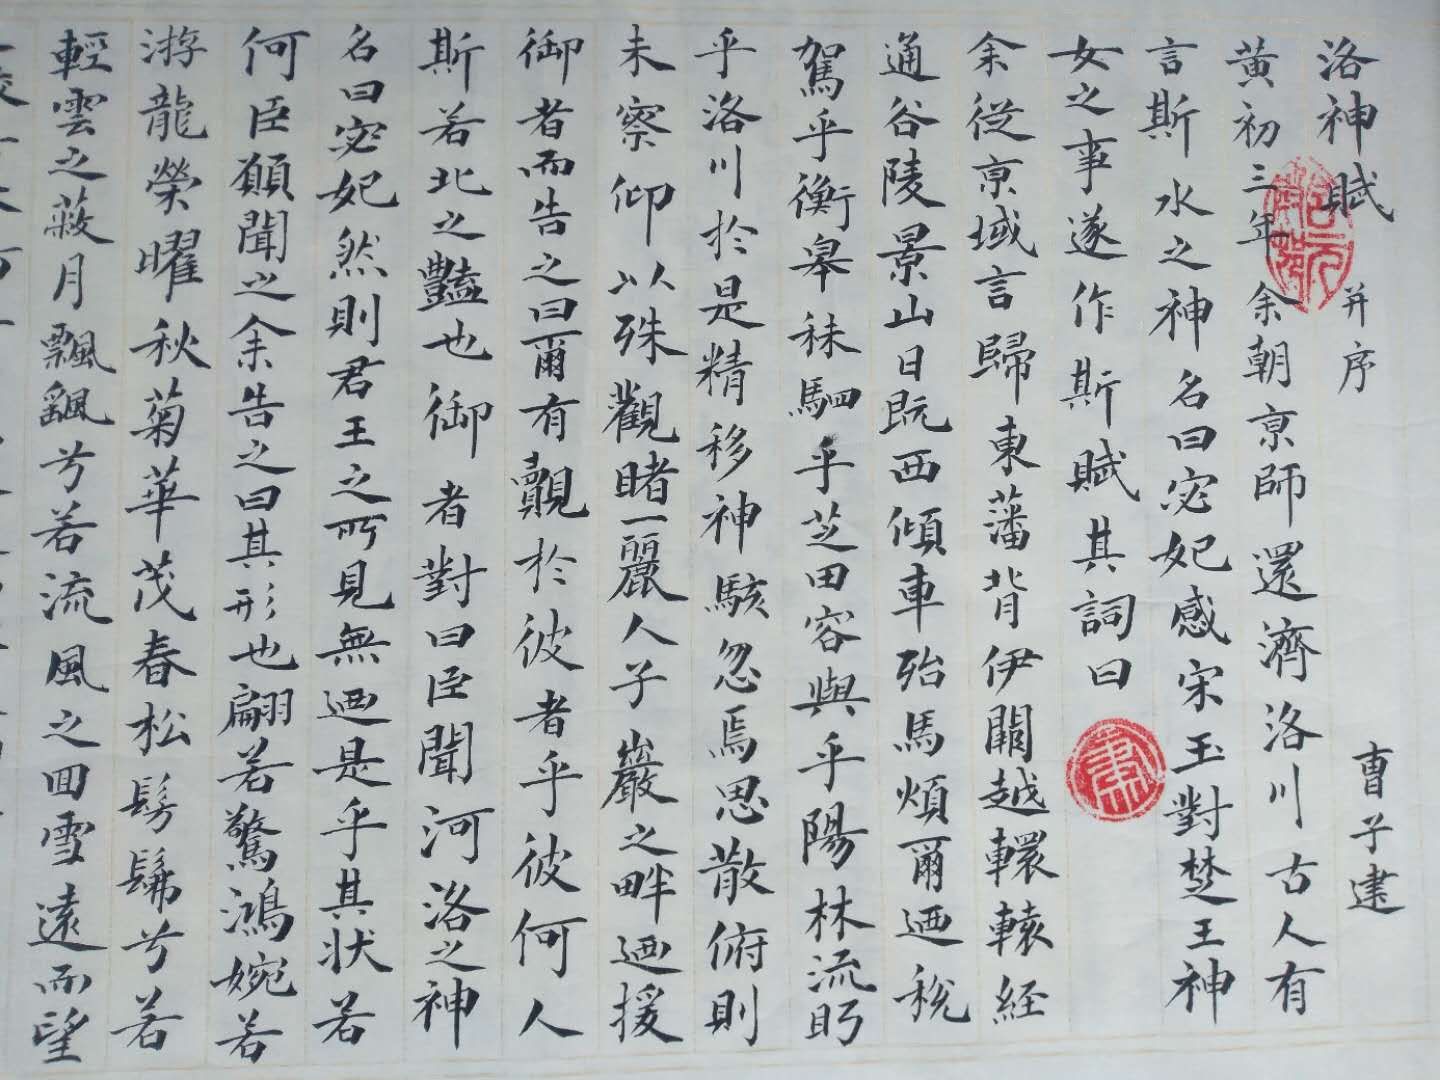 洛神賦 并序 曹子建
黄初三年余朝京師還濟洛川古人有
言斯水之神名曰宓妃感宋玉對楚王神
女之事遂作斯賦其詞曰
余從京域言歸東藩背伊闕越轘轅經
通谷陵景山日既西傾車殆馬煩爾迺税
駕乎衡皋秣駟乎芝田容與乎陽林流眄
乎洛川於是精移神駭忽焉思散俯則
未察仰以殊觀睹一麗人于巖之畔迺援
御者而告之曰爾有覿於彼者乎彼何人
斯若此之豔也御者對曰臣聞河洛之神
名曰宓妃然則君王之所見無迺是乎其狀若
何臣願聞之余告之曰其形也翩若驚鴻婉若
游龍榮曜秋菊華茂春松髣髴兮若
輕雲之蔽月飄飖兮若流風之回雪遠而望